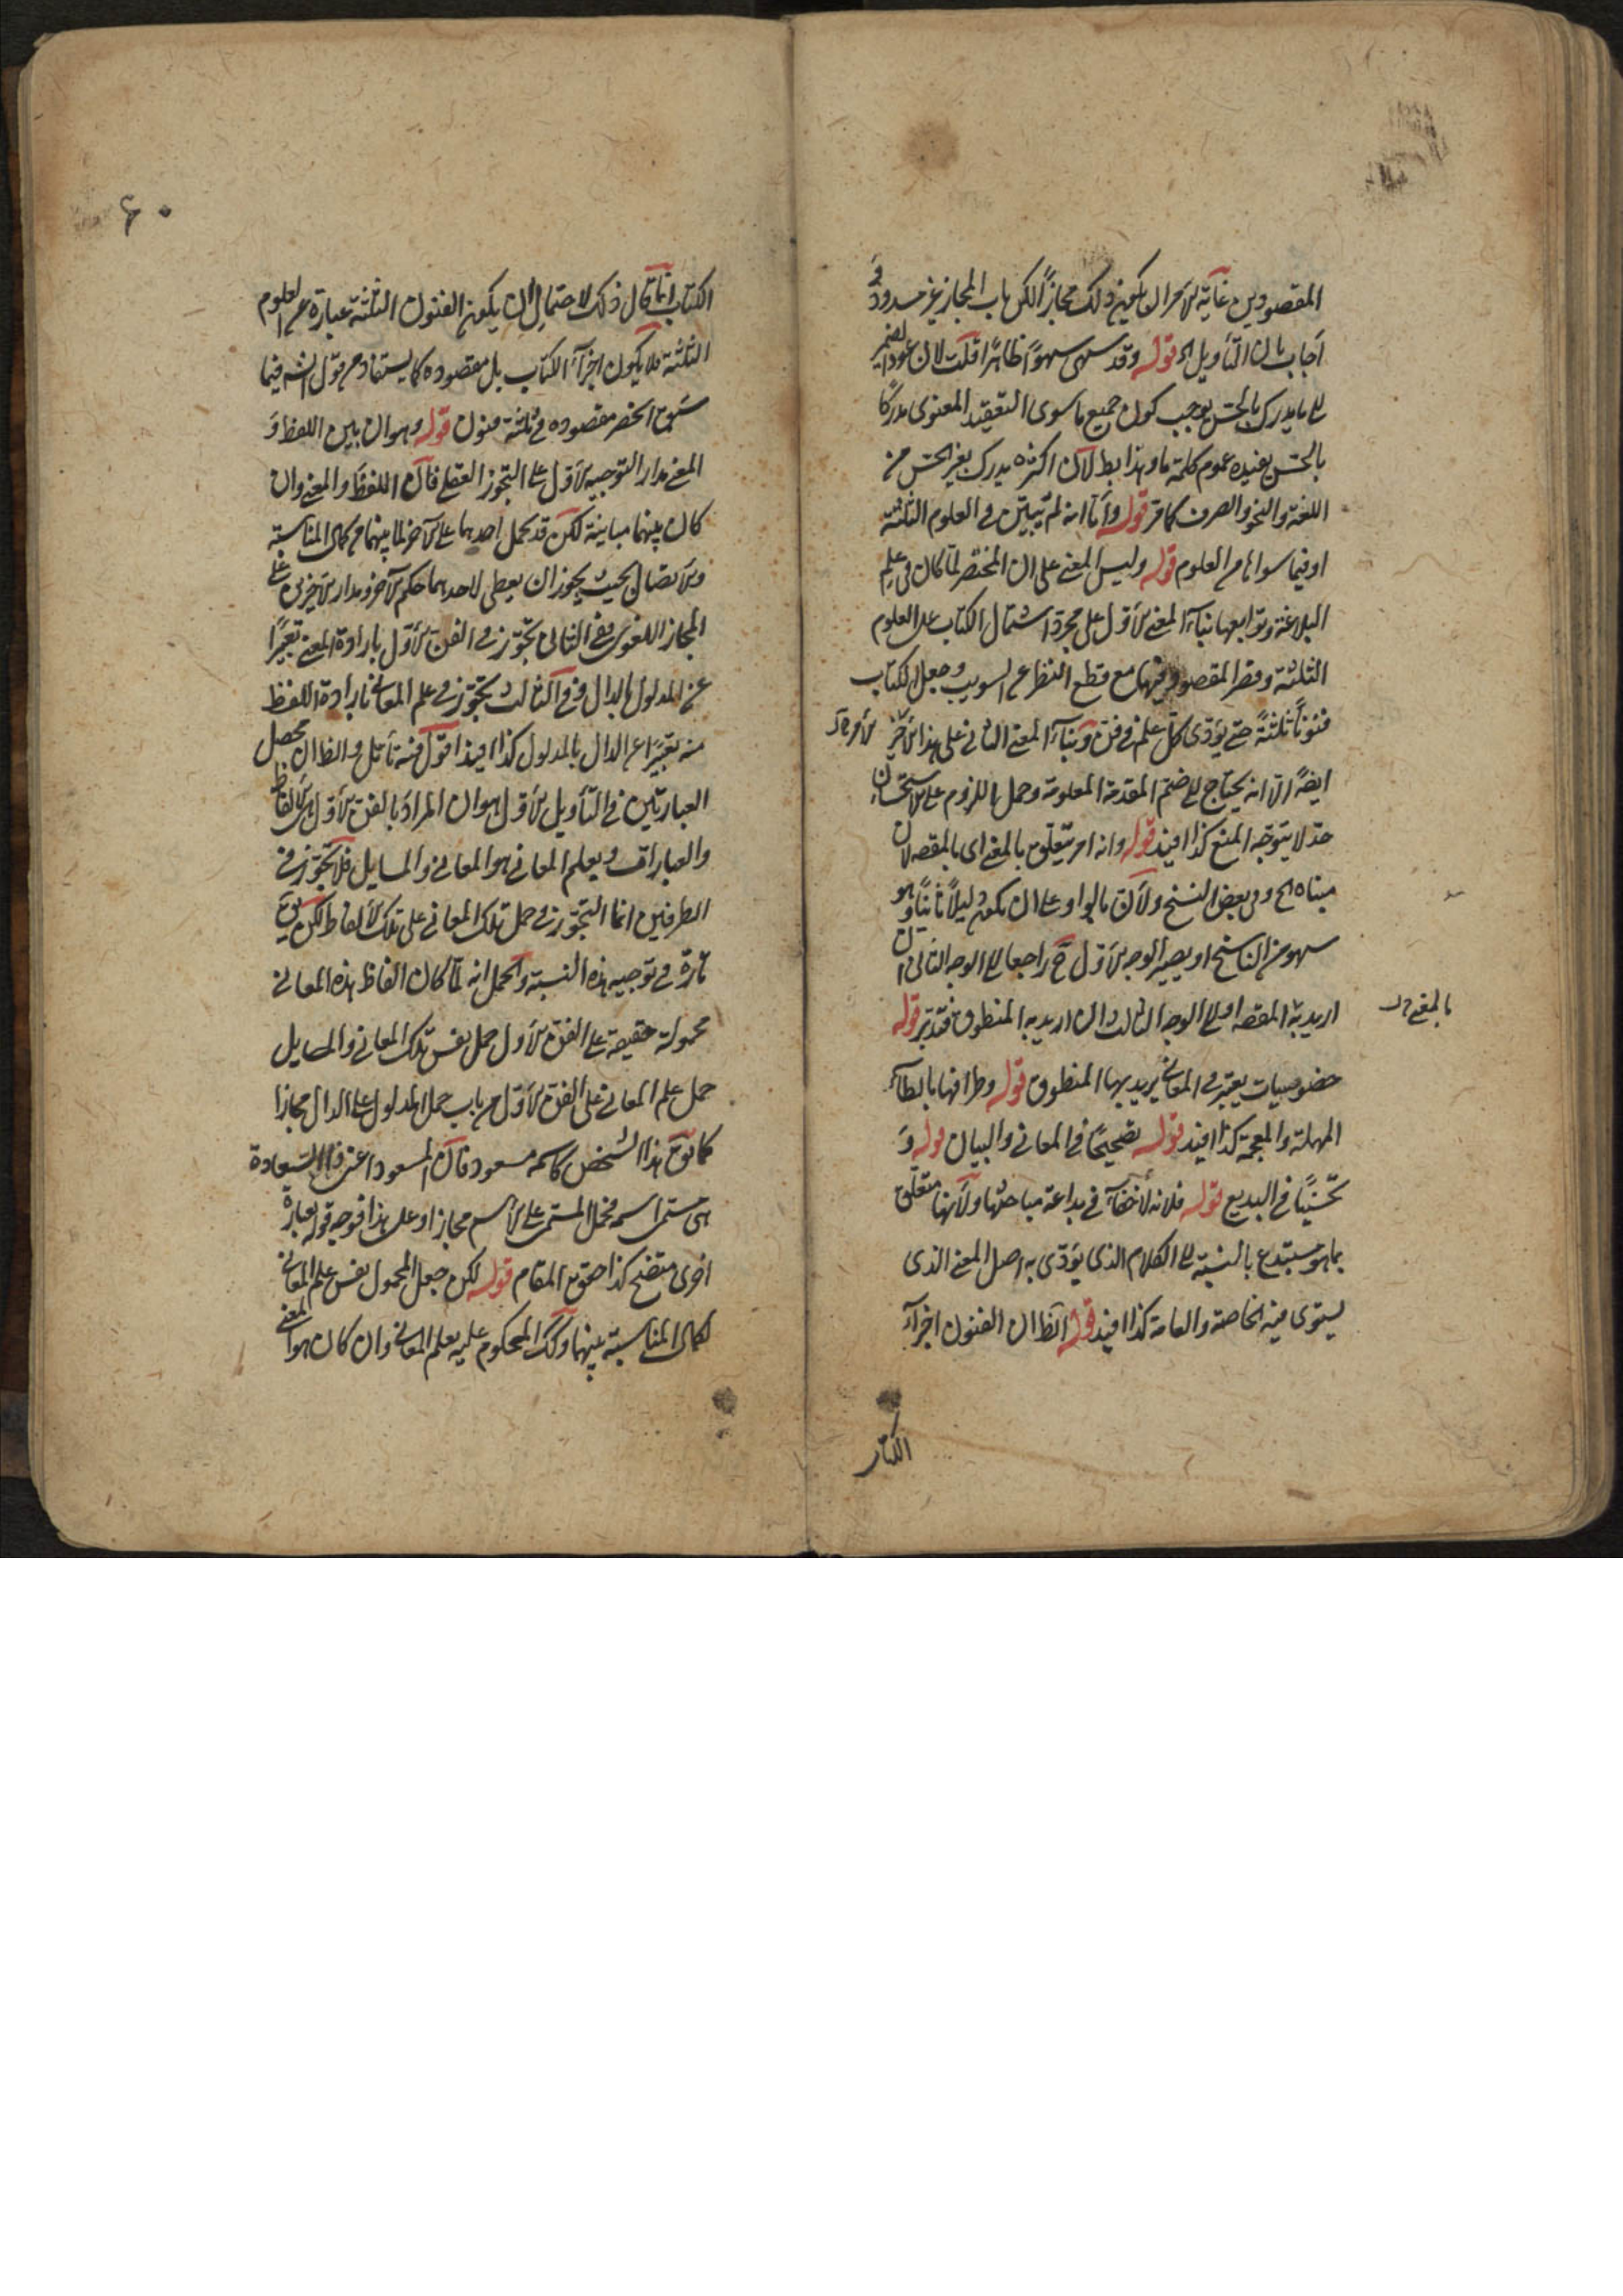 المقصودين غاية الامر ان يكون ذلك مجازا لكن باب المجاز غير مسدود و
اجاب بان التأويل الخ قوله وقد سهى سهوا ظاهرا قلت لان عود الضمير
الى ما يدرك بالحس يوجب كون جميع ما سوى التعقيد المعنوى مدركا
بالحس يفيده عموم كلمة ما وهذا بط لان اكثره يدرك بغير الحس من
اللغة والنحو والصرف كما مر قوله واما انه لم تبين فى العلوم الثلثة
او فيما سواها من العلوم قوله وليس المعنى على ان المختصر لما كان فى علم
البلاغة وتوابعها بناء المعنى الاول على مجرد اشتمال الكتاب على العلوم
الثلثة وقصر المقصود فيها مع قطع النظر عن السويب وجعل الكتاب
فنونا ثلثة حتى يؤدى كل علم فى فن وبناء المعنى الثانى على هذا الاخير
ايضا الا انه يحتاج الى ضم المقدمة المعلومة وحمل اللزوم على الاستحسان
حتى لا يتوجه المنع كذا افيد قوله وانه امر يتعلق بالمعنى اى بالمقصد لان
مبناه الخ وفى بعض النسخ ولان بالواو على ان يكون دليلا ثانيا وهو
سهو من الناسخ او يصير الوجه الاول ح راجعا الى الوجه الثانى ان
اريد به المقصد او الى الوجه الثالث ان اريد به المنطوق فتدبر قوله
بالمعنى
خصوصيات يعتبر فى المعانى يريد بها المنطوق قوله وطرافتها بالطاء
المهملة والمعجمة كذا افيد قوله تصحيحا فى المعانى والبيان قوله و
تحسينا فى البديع قوله فلانه لا خفاء فى بداعة مباحثها ولانها متعلق
بما هو مستبدع بالنسبة الى الكلام الذى يؤدى به اصل المعنى الذى
يستوى فيه الخاصة والعامة كذا افيد قوله الظ ان الفنون اجزاء
الكتاب
٦٠
الكتاب انما قال ذلك لاحتمال ان يكون الفنون الثلثة عبارة عن العلوم
الثلثة فلا يكون اجزاء الكتاب بل مقصوده كما يستفاد من قول الش فيما
سبق انحصر مقصوده فى ثلثة فنون قوله وهو ان بين اللفظ و
المعنى مدار التوجيه الاول على التجوز العقلى فان اللفظ والمعنى وان
كان بينهما مباينة لكن قد يحمل احدهما على الاخر لما بينهما من كمال المناسبة
والاتصال بحيث يجوز ان يعطى لاحدهما حكم الاخر ومدار الاخيرين على
المجاز اللغوى ففى الثانى تجوز فى الفن الاول بارادة المعنى تعبيرا
عن المدلول بالدال وفى الثالث تجوز فى علم المعانى بارادة اللفظ
منه تعبيرا عن الدال بالمدلول كذا افيد اقول فيه تأمل والظ ان محصل
العبارتين فى التأويل الاول هو ان المراد بالفن الاول هى الالفاظ
والعبارات وبعلم المعانى هو المعانى والمسايل فلا تجوز فى
الطرفين انما التجوز فى حمل تلك المعانى على تلك الالفاظ لكن يق
تارة فى توجيه هذه النسبة والحمل انه لما كان الفاظ هذه المعانى
محمولة حقيقة على الفن الاول حمل نفس تلك المعانى والمسايل
حمل علم المعانى على الفن الاول من باب حمل المدلول على الدال مجازا
كما يق هذا الشخص كاسمه مسعود فان المسعود اعنى ذا السعادة
هى مسمى اسمه فحمل المسمى على الاسم مجازا وعلى هذا فوجه قوله بعبارة
اخرى متضح كذا حقق المقام قوله لكن جعل المحمول نفس علم المعانى
لكمال المناسبة بينهما وكك المحكوم عليه بعلم المعانى وان كان هو المعنى